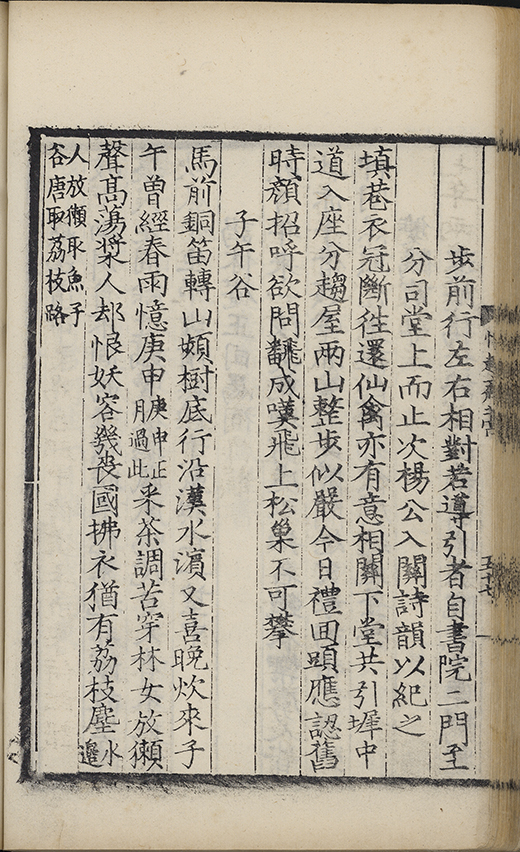 步前行左右相對若導引者自書院二門至
分司堂上而止次楊公入關詩韻以紀之
填巷衣冠斷徃還仙禽亦有意相關下堂共引墀中
道入座分趨屋兩山整步似嚴今日禮回頭應認舊
時顔招呼欲問飜成嘆飛上松巢不可攀
子午谷
馬前銅笛轉山頻樹底行沿漢水濱又喜晚炊來子
午曾經春雨憶庚申庚申正月過此采茶調苦穿林女放獺
聲高蕩槳人却恨妖容幾喪國拂衣猶有荔枝塵水邊
人放獺取魚子
谷唐取荔枝路